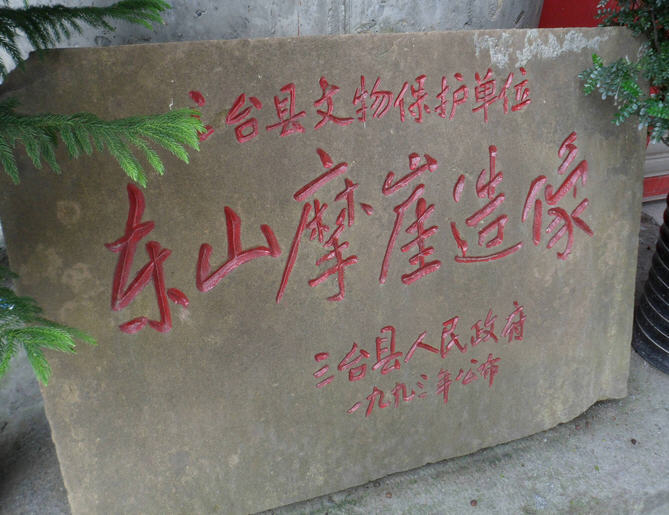 三台县文物保护单位
东山摩崖造像
三台县人民政府
一九九三年公布